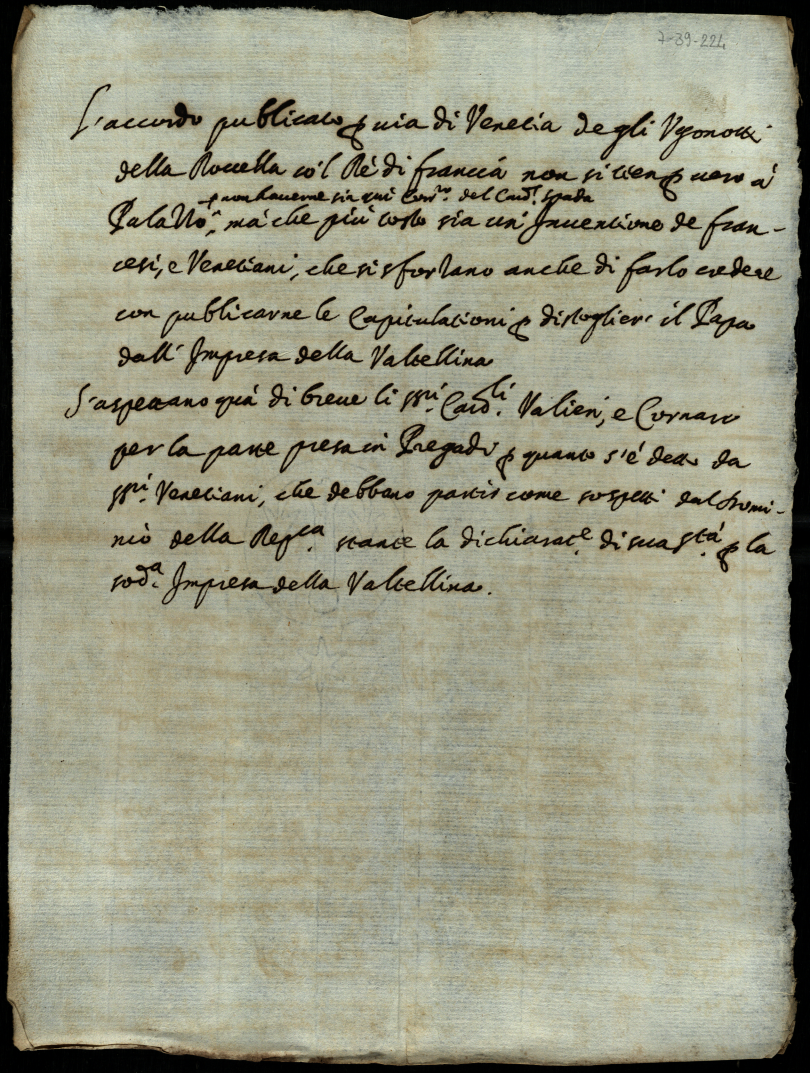 7-39-224
L'accordo publicato ꝑ uia di Venetia degli Vgonotti
della Rocella co'l Rè di francia non si tien ꝑ uero à
ꝑ non hauerne sin quì del Card.l Spada
Palazzo, mà che più tosto sia un' Inuentione de fran-
cesi, e Venetiani, che si sforzano anche di farlo credere
con publicarne le Capitulationi ꝑ distoglier il Papa
dall' Impresa della Valtellina
S'aspettano quà di breue li SS.ri Card.li Valieri, e Cornaro
per la parte presa in Pregadi ꝑ quanto s'è detto da
SS.ri Venetiani, che debbano partir come sospetti dal Domi-
nio della Rep.ca stante la dichiarat.e di sua S.tà ꝑ la
sod.a Impresa della Valtellina.